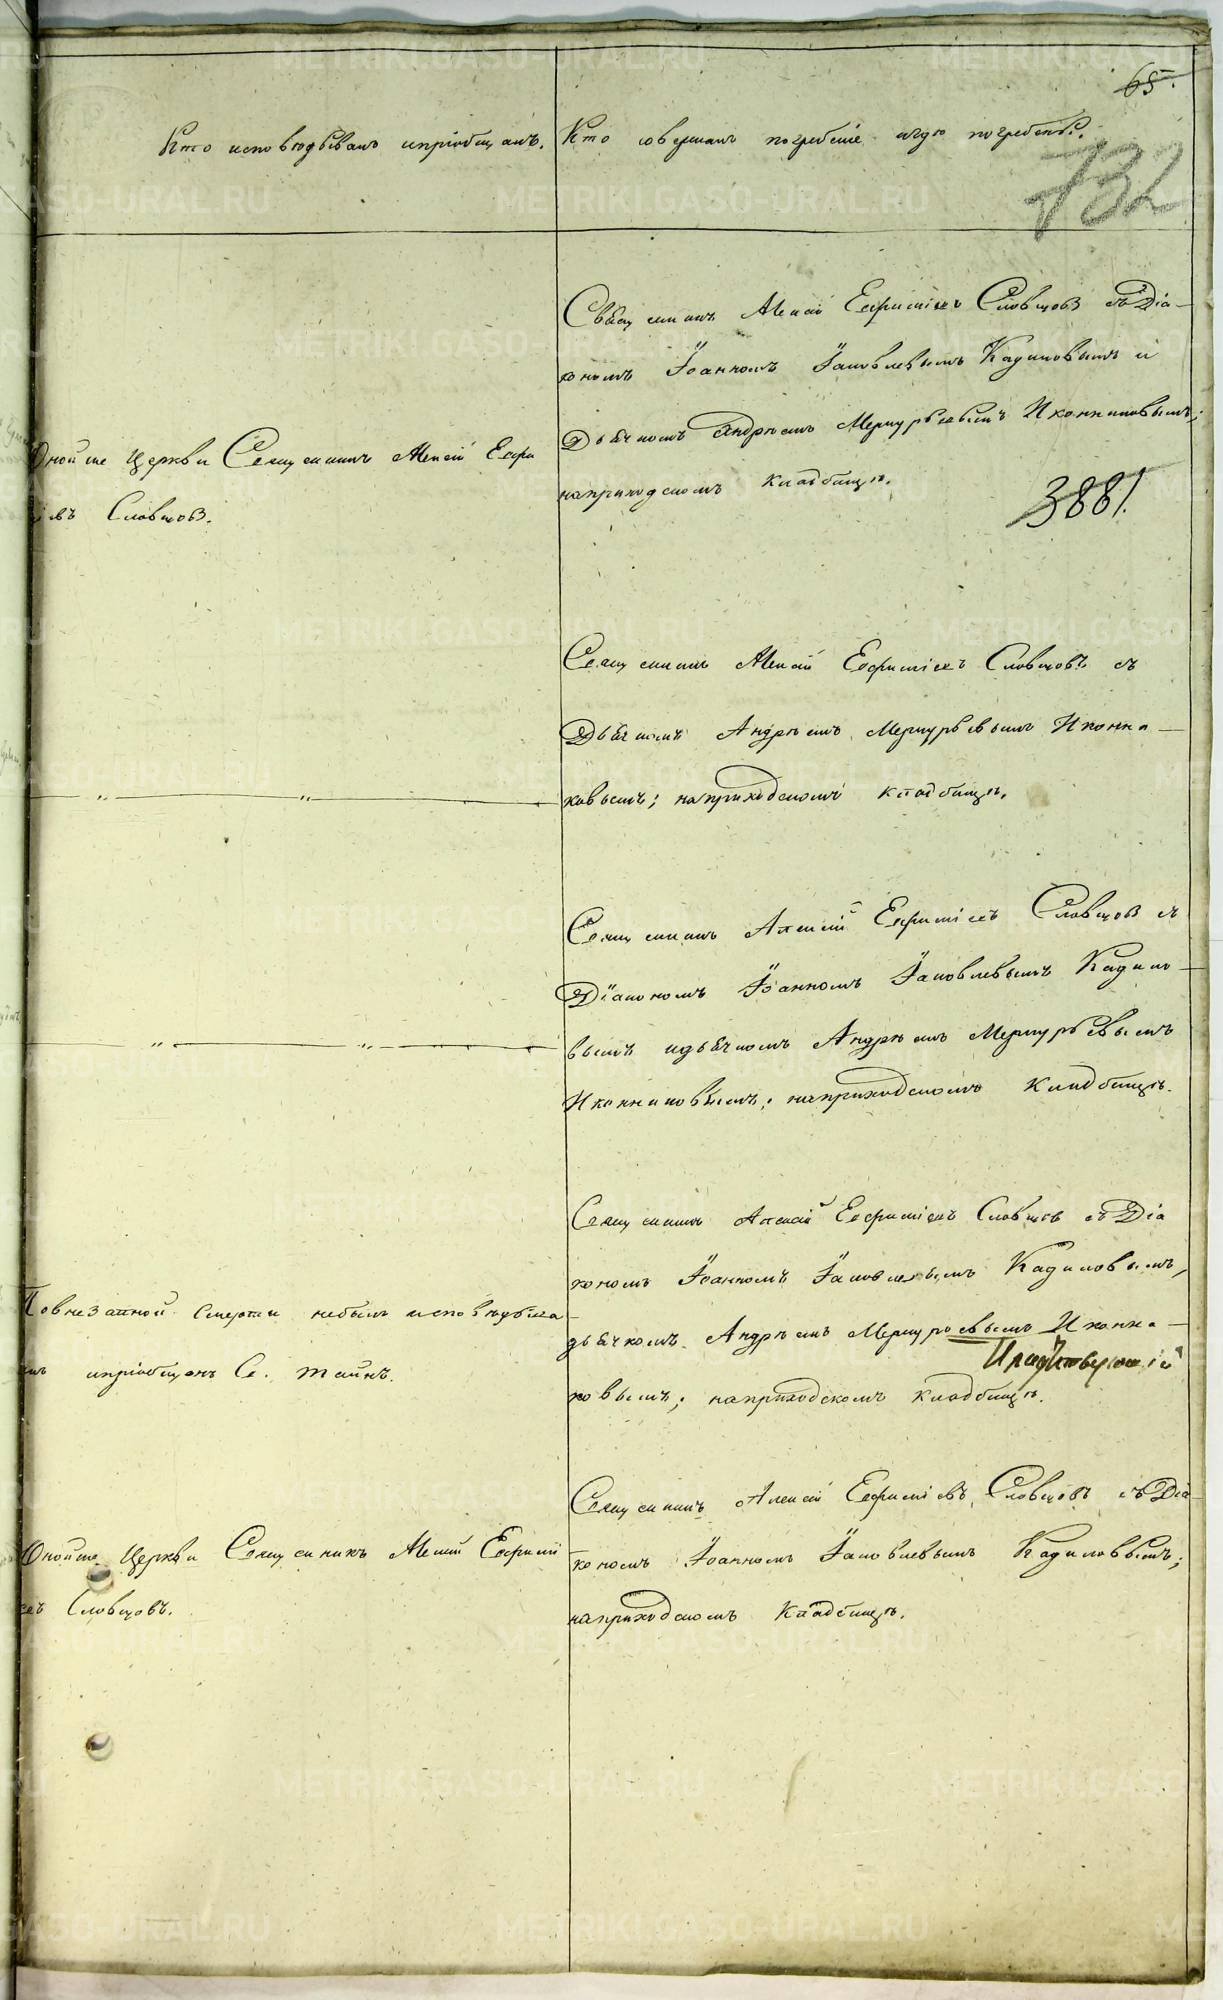 65.
Кто исповѣдывалъ и пріобщалъ.
Кто совершалъ погребеніе и гдѣ погребены.
732
Священникъ Алексій Ефиміевъ Словцовъ съ Діа-
кономъ Іоанномъ Іаковлевымъ Кадиловымъ и
Дьячкомъ Андреемъ Меркурьевымъ Иконниковымъ;
на приходскомъ кладбищѣ.
3881.
Оной же Церкви Священникъ Алексій Ефи
Словцовъ.
Священникъ Алексій Ефиміевъ Словцовъ съ
Дьячкомъ Андреемъ Меркурьевымъ Иконни-
ковымъ; на приходскомъ кладбищѣ.
Священникъ Алексій Ефиміевъ Словцовъ съ
Діакономъ Іоанномъ Іаковлевымъ Кадило-
вымъ и дьячкомъ Андреемъ Меркурьевымъ
Иконниковымъ; на приходскомъ кладбищѣ.
Священникъ Алексій Ефиміевъ Словцовъ съ Діа
кономъ Іоанномъ Іаковлевымъ Кадиловымъ,
дьячкомъ Андреемъ Меркурьевымъ Иконни-
ковымъ; на приходскомъ кладбищѣ.
По внезапной смерти небылъ исповѣдыва
и пріобщенъ Св. Таинъ.
Священникъ Алексій Ефиміевъ Словцовъ съ Діа-
кономъ Іоанномъ Іаковлевымъ Кадиловымъ;
на приходскомъ кладбищѣ.
Оной же Церкви Священникъ Алексій Ефимі
евъ Словцовъ.
METRIKI.GASO-URAL.RU